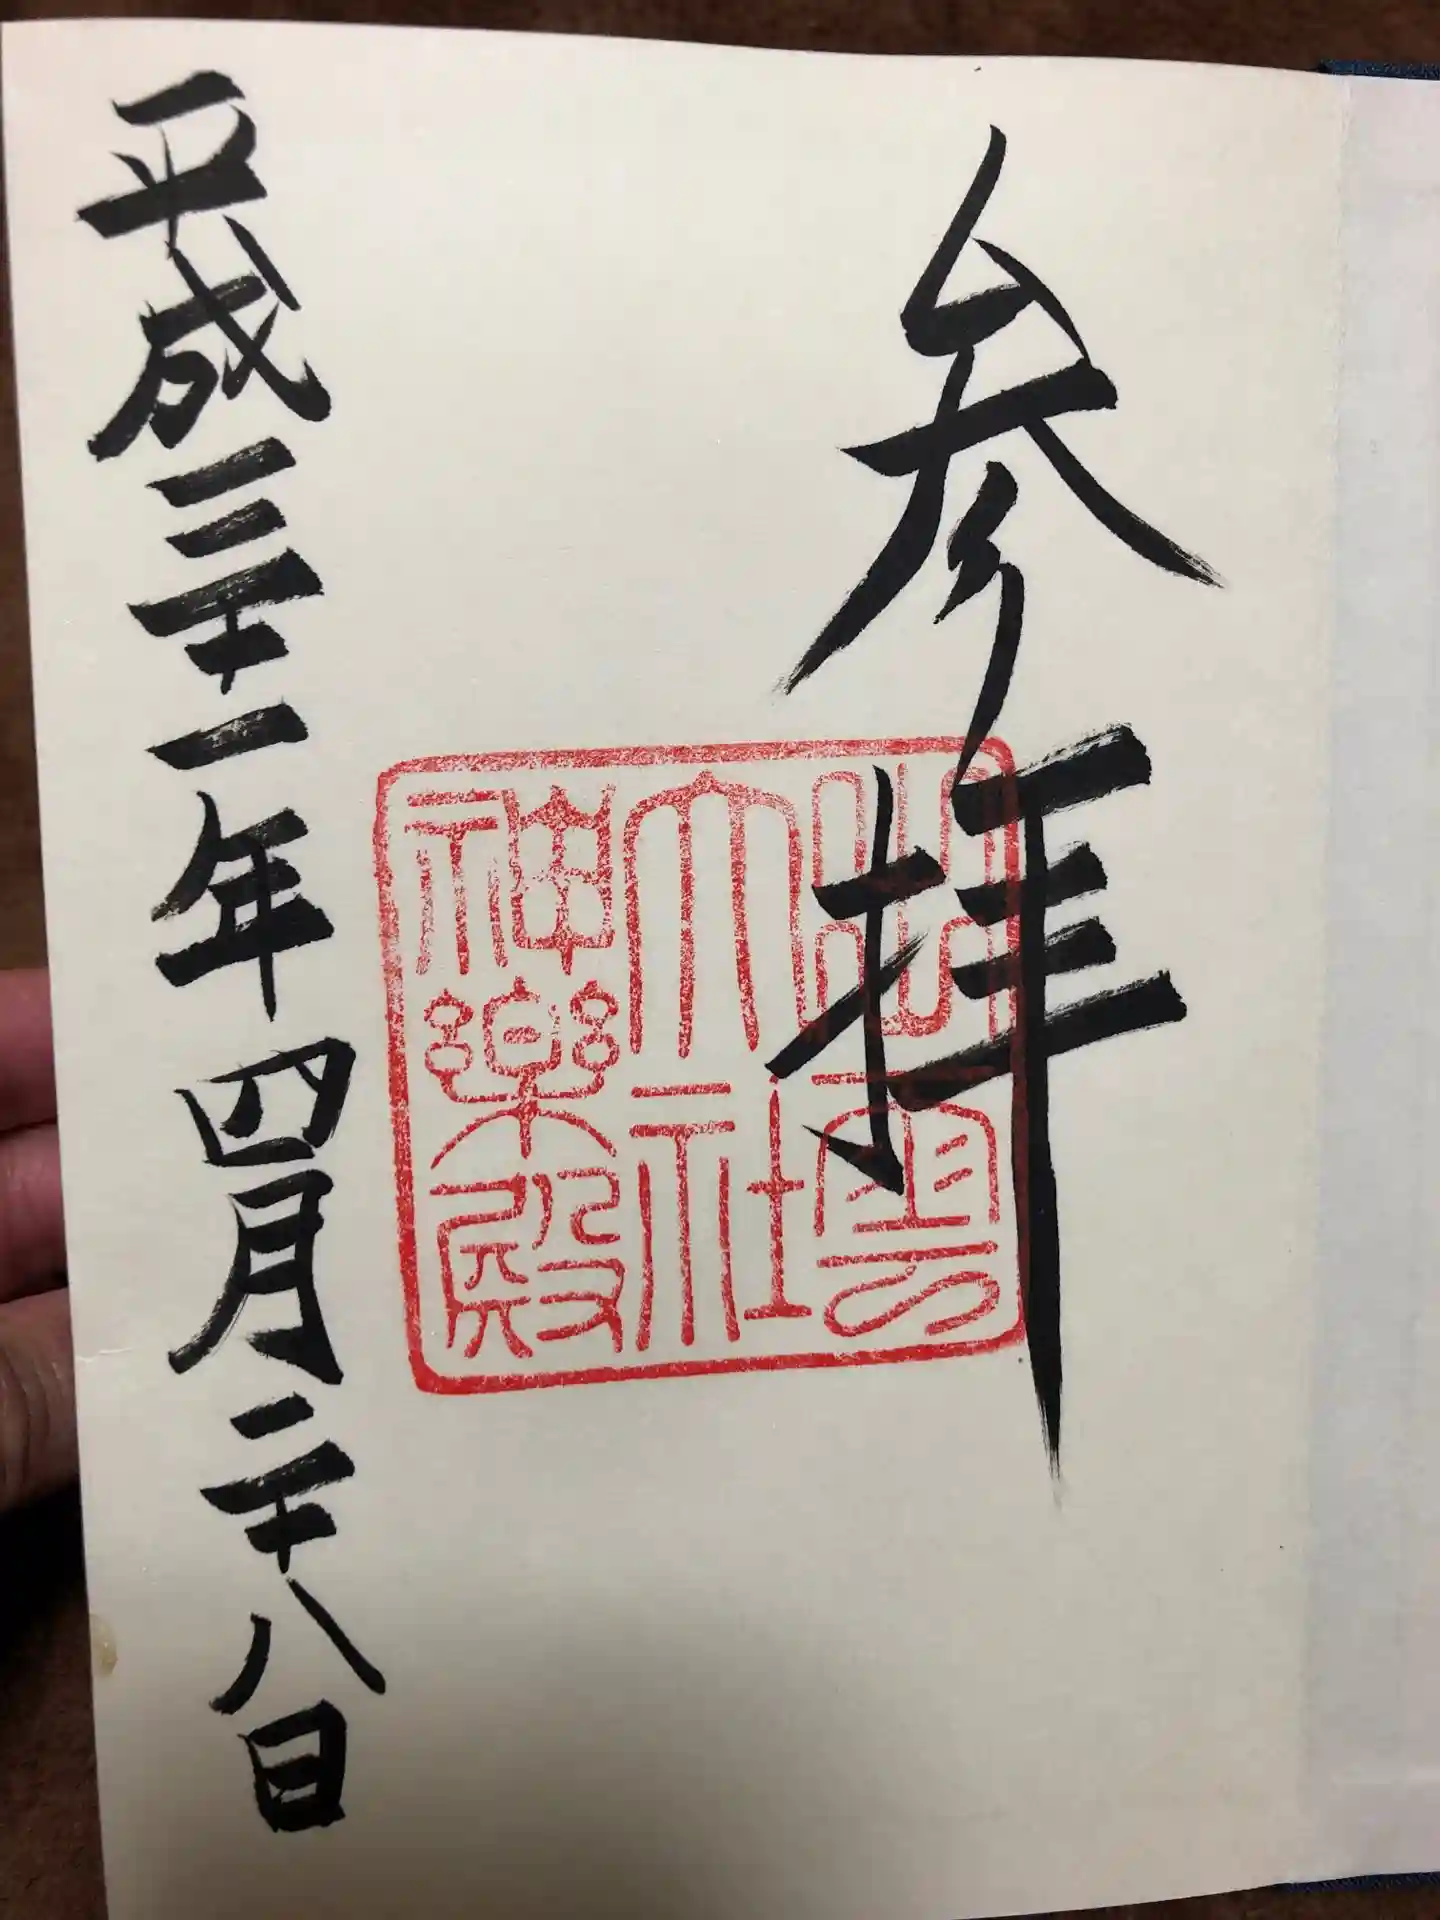 参拝
出雲
大社
神楽殿
平成三十一年四月二十八日